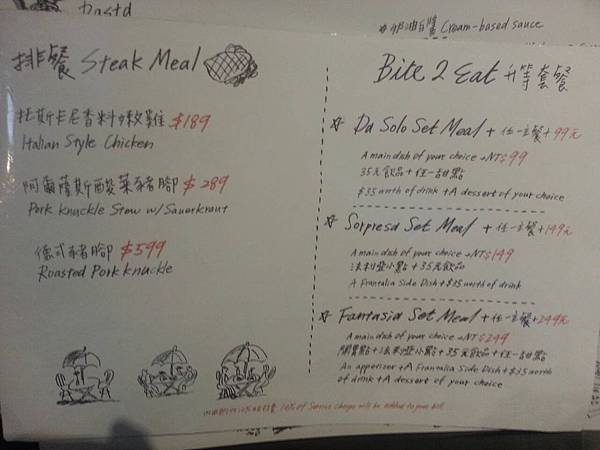 pasta
奶油白醬 Cream-based sauce
排餐 Steak Meal
托斯卡尼香料嫩雞 $189
Italian Style Chicken
阿爾薩斯酸菜豬腳 $289
Pork Knuckle Stew w/ Sauerkraut
德式豬腳 $599
Roasted Pork Knuckle
Bite 2 Eat 升等套餐
☆ Da Solo Set Meal + 任一主餐+99元
A main dish of your choice +NT$99
35元飲品+任一甜點
$35 worth of drink +A dessert of your choice
☆ Sorpresa Set Meal + 任一主餐+149元
A main dish of your choice +NT$149
法利發小點+35元飲品
A Frantalia Side Dish +$35 worth of drink
☆ Fantasia Set Meal + 任一主餐+249元
A main dish of your choice +NT$249
開胃點+法利發小點+35元飲品+任一甜點
An appetizer +A Frantalia Side Dish +$35 worth
of drink +A dessert of your choice
10% of Service Charge will be added to your bill